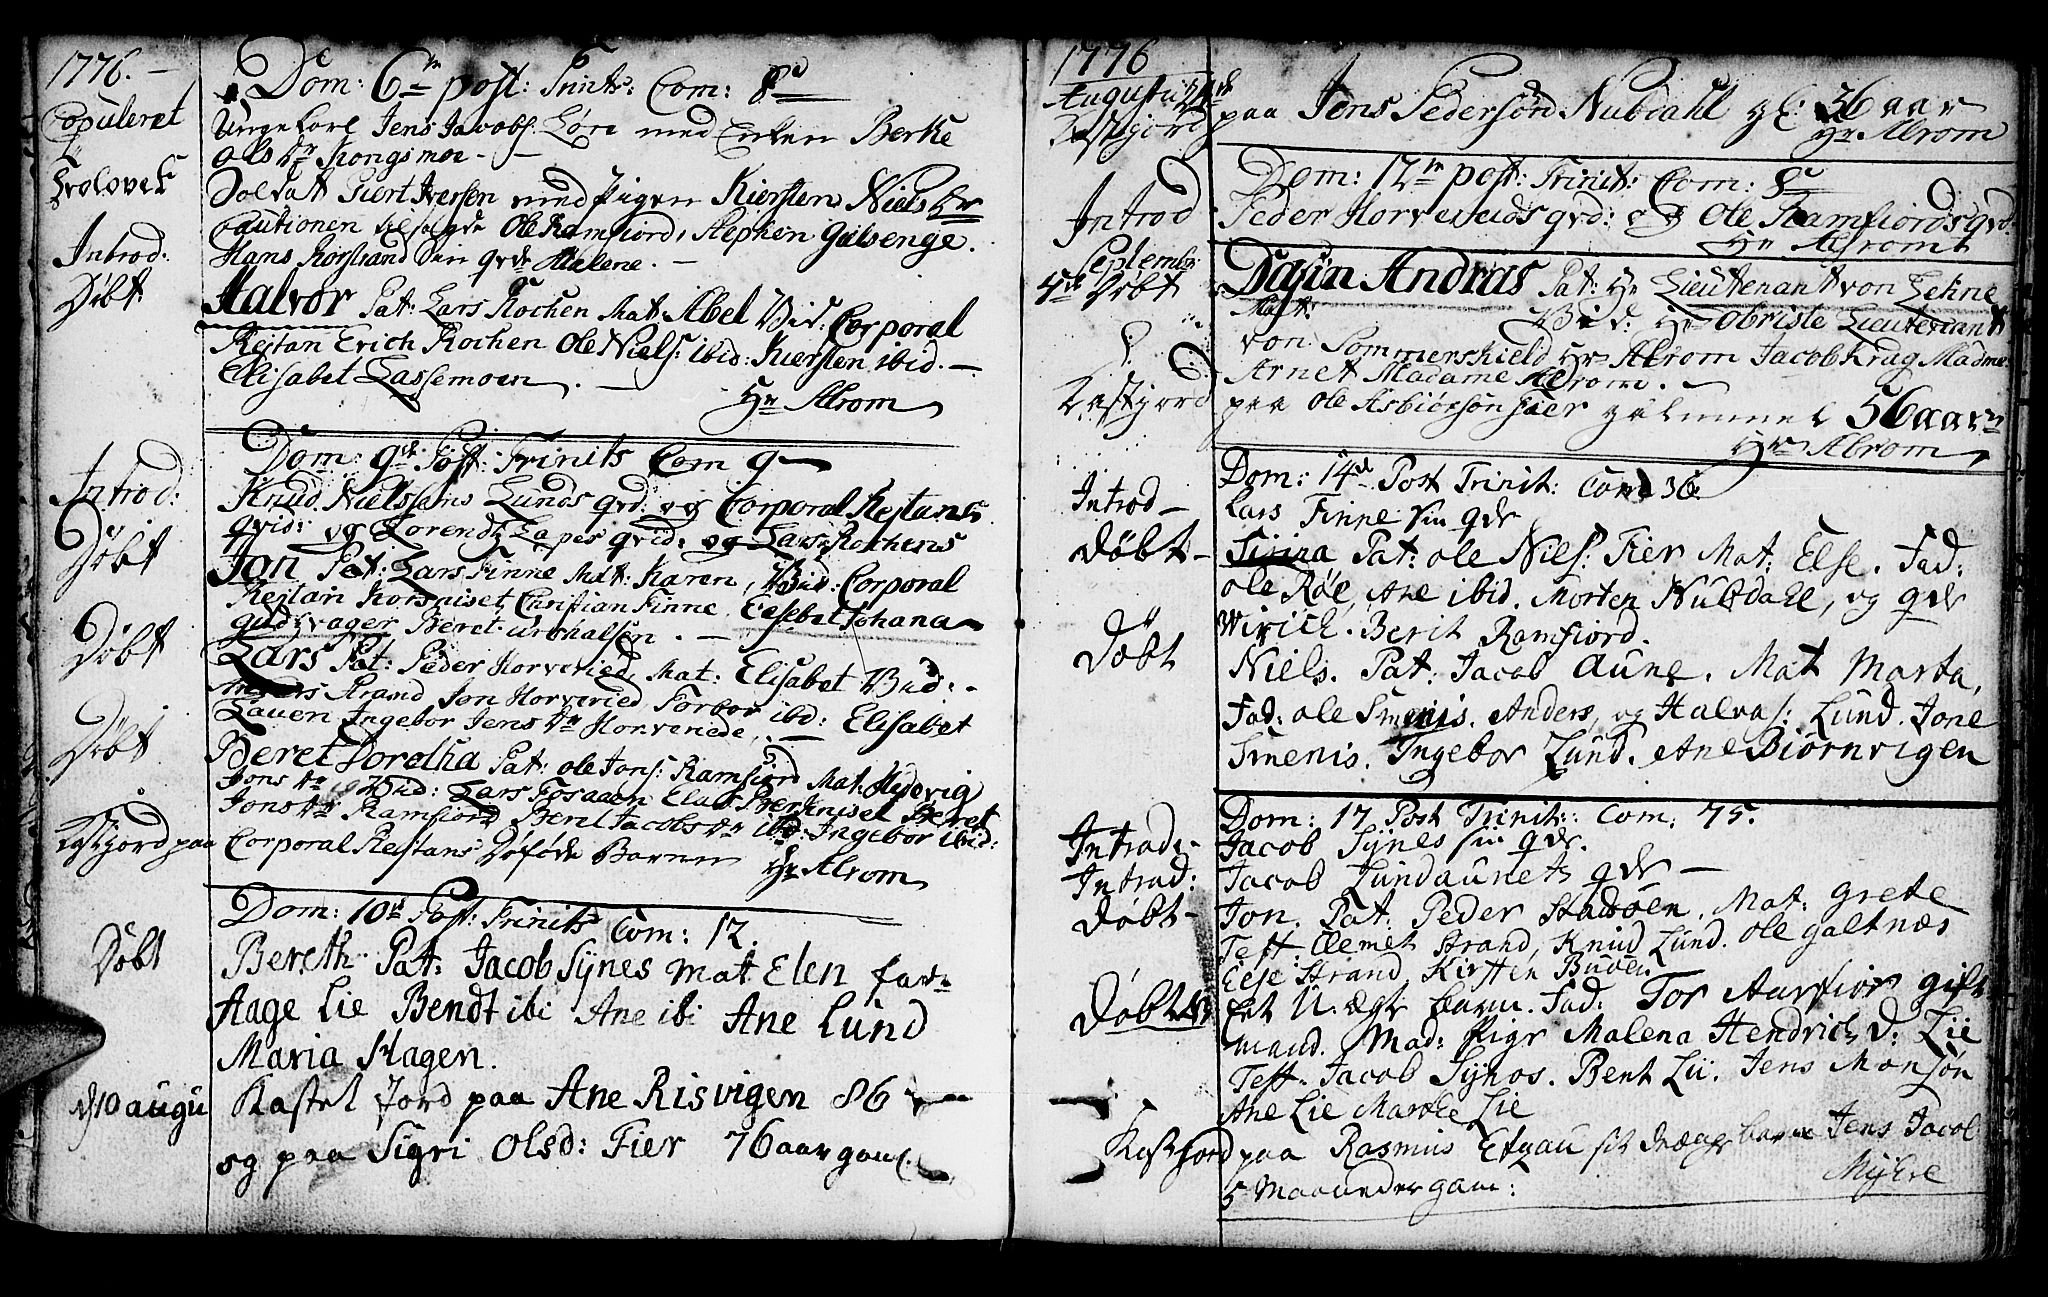 1776.
Copuleret
Trolovet
Introd:
Døbt
Introd:
Døbt
Døbt
Døbt
Kastjord paa
Døbt
d 10 augu
Dom: 6te post: Trinits: Com: 8
Unge Karl Jens Jacobs: Løre med Enken Berte
Ols dr Kongsmoe.
Soldat Siert Iversen med Pigen Kiersten Niels dr
Cautionen Ole Ramfiord, Stephen Galsenge.
Hans Korstrand Sin qvde Malene.
Halvor Pat: Lars Kochen Mat: Abel Vid: Corporal
Restan Erich Kochen Ole Niels: ibid: Kiersten ibid.
Elisabet Lassemoen.
Hr Alrom
Dom: 9de Post: Trinits Com 9
Knud Nielssens Lunds qvd: og Corporal Restans
qvid: og Lorendz Lapes qvid: og Lars Kochens
Jon Pat: Lars Finne Mat: Karen, Vid: Corporal
Restan Korsniset, Christian Finne, Elsebet Johana
guds Beret
Lars Pat: Peder Horveried Mat: Elisabet Vid:
Anders Strand Jon Horveried Torber ibd: Elisabet
Lauen Ingebor Jens dr Horveriede,
Beret Dorotha Pat: Ole Jons: Ramfiord Mat: Hydevig
Jons dr Vid: Lars Fosaaen Beret
Jons dr Ramfiord Beret Jacobs dr ibd: Ingebor ibid:
Corporal Restans Døføde Barn
Hr Alrom
Dom: 10de Post: Trinits Com: 12
Bereth Pat: Jacob Synes mat Elen fad
Aage Lie Bendt ibi Ane ibi Ane Lund
Maria Hagen.
Kastet Jord paa Ane Risvigen 86
og paa Sigri Olsd: Fier 76 aar gaml
1776
Augustii
Kastjord
Introd
Septembr
Døbt
Kastjord
Introd
Døbt
Døbt
Introd:
Introd:
Døbt
Døbt
Kastjord
paa Jens Pedersøn Nubdahl gl: 56 aar
Hr Alrom
Dom: 12te post: Trinit: Com: 8
Peder Horverieds qvd: og Ole Ramfiords qvd:
Hr Alrom
Dagin Andras Pat: Hr Lieutenant von Lehne
Mat: Vid: Hr Obriste Lieutenant
von Sommerskield Hr Alrom Jacob Krag Madme
Arnet Madame Alrom.
paa Ole Asbiørsøn Fier gammel 56 aar
Hr Alrom
Dom: 14de Post Trinit: Com 36
Lars Finne sin qde
Sirina Pat: Ole Niels: Fier Mat: Else. Fad:
Ole Røe, Ane ibid. Morten Nubdahl, og qde
Wirich. Berit Ramfiord.
Niels. Pat: Jacob Aune. Mat Marta,
Fad: Ole Smenis. Anders, og Halvas: Lund. Jone
Smenis. Ingebor Lund. Ane Biørnvigen
Dom: 17 Post Trinit: Com: 75.
Jacob Synes sin qde.
Jacob Lundaunets qde
Jon. Pat: Peder Stadsøen. Mat: Grete
Test: Clemet Strand, Knud Lund. Ole Galtnæs
Else Strand, Kirsten Buøen
Eet U: ægte Barn. Fad: Tor Aarfior gift
mand. Mad: Pige Malena Hendrichs d: Lie
Test: Jacob Synes. Bent Lii. Jens Monsøn
Ane Lie Marthe Lie
paa Rasmus sit drænge barn Jens Jacob
5 Maaneder gam: